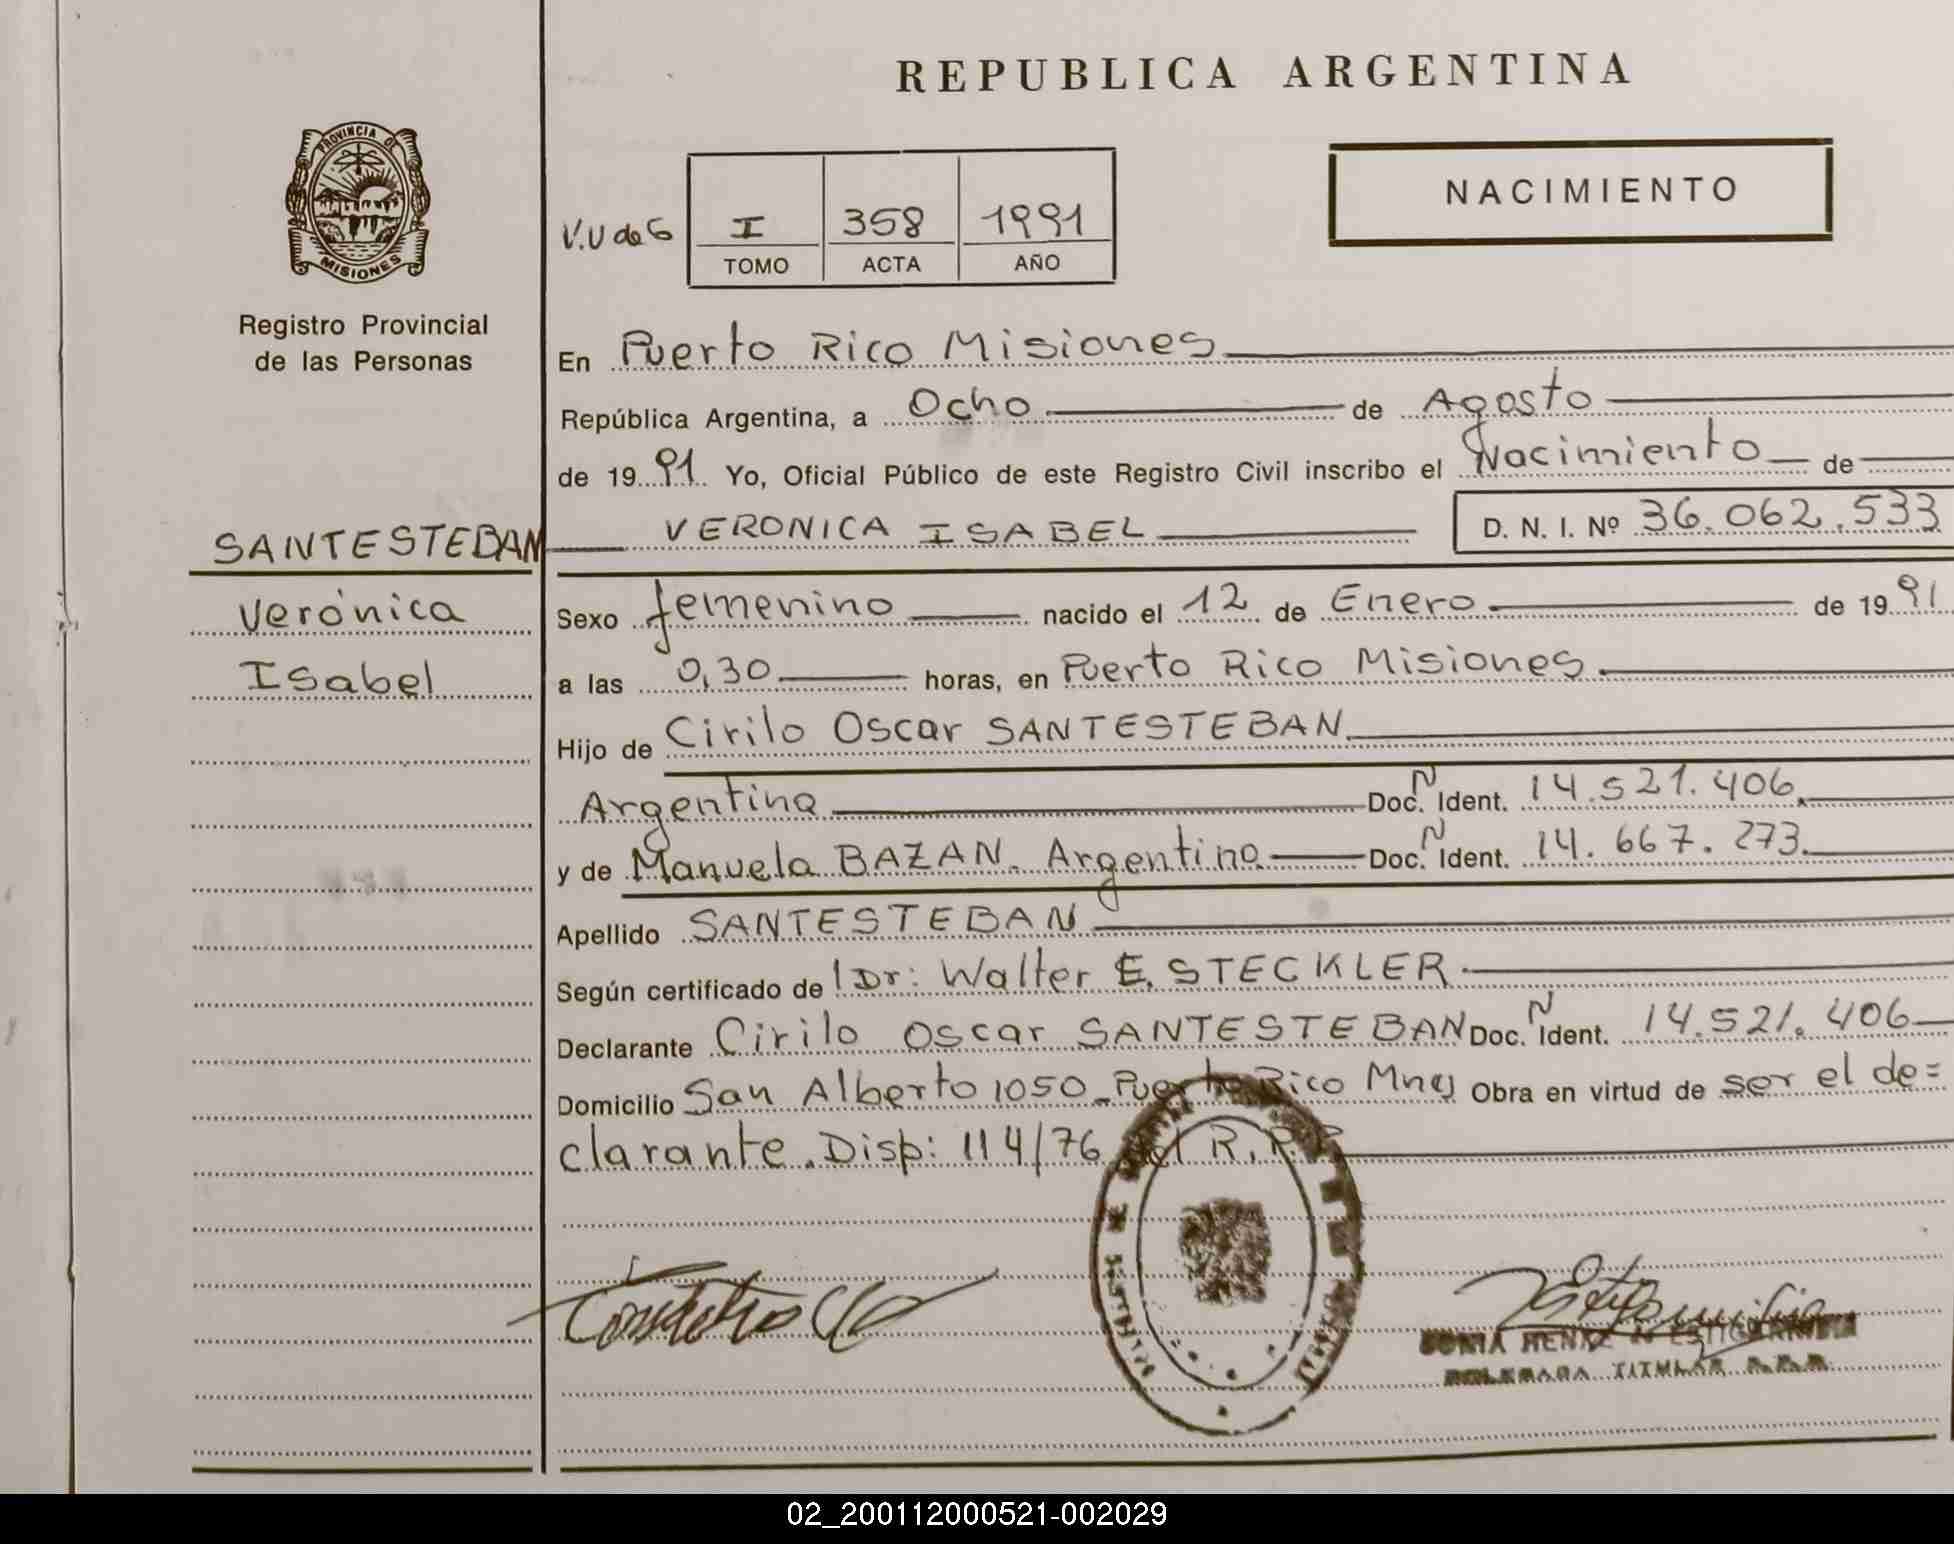 REPUBLICA ARGENTINA
PROVINCIA DE
MISIONES
Registro Provincial
de las Personas
NACIMIENTO
V.U de G
I 358 1991
TOMO ACTA AÑO
En Puerto Rico Misiones
República Argentina, a Ocho de Agosto
de 1991 Yo, Oficial Público de este Registro Civil inscribo el Nacimiento de
SANTESTEBAN VERONICA ISABEL D. N. I. Nº 36.062.533
Verónica
Isabel
Sexo femenino nacido el 12 de Enero de 1991
a las 0,30 horas, en Puerto Rico Misiones
Hijo de Cirilo Oscar SANTESTEBAN
Argentina Doc. N Ident. 14.521.406.
y de Manuela BAZAN. Argentina Doc. N Ident. 14.667.273.
Apellido SANTESTEBAN
Según certificado de Dr: Walter E. STECKLER
Declarante Cirilo Oscar SANTESTEBAN Doc. N Ident. 14.521.406
Domicilio San Alberto 1050 Puerto Rico Mnes Obra en virtud de ser el de=
clarante. Disp: 114/76 del R.P.P
02_200112000521-002029